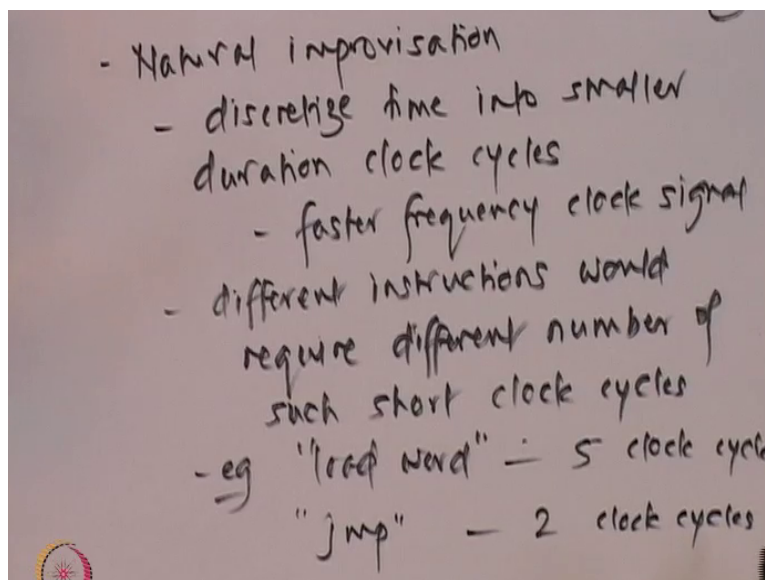 - Natural improvisation
- discretize time into smaller
duration clock cycles
- faster frequency clock signal
- different instructions would
require different number of
such short clock cycles
- eg "load word" - 5 clock cycle
"jmp" - 2 clock cycles